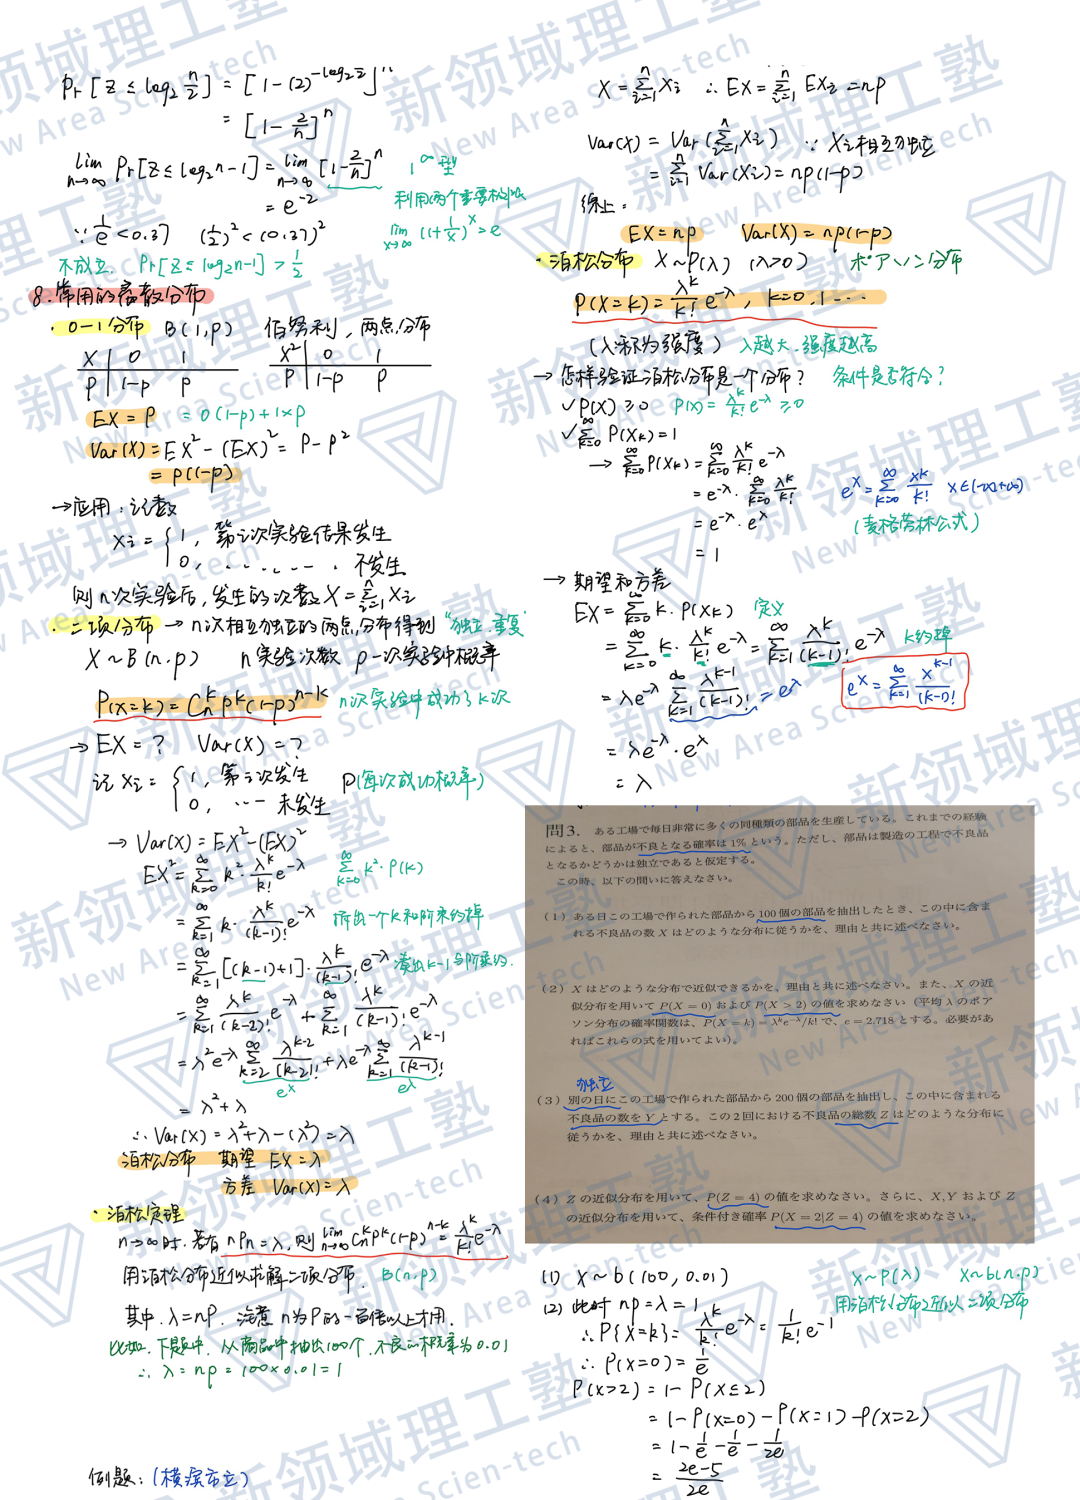 Pr[Z ≤ log₂ n/2] = [1-(2)^{-log₂ n/2}]^n
= [1 - 2/n]^n
lim_{n→∞} Pr[Z ≤ log₂n-1] = lim_{n→∞} [1-2/n]^n 1^∞型
= e^{-2} 利用两个重要极限
∵ 1/e < 0.37 (1/e)² < (0.37)² lim_{x→∞} (1+1/x)^x = e
不成立. Pr[Z ≤ log₂n-1] > 1/2
8.常用的离散分布
· 0-1分布 B(1,p) 伯努利, 两点分布
X | 0 1
P | 1-p p
X² | 0 1
P | 1-p p
EX = P = 0(1-p)+1×p
Var(X) = EX² - (EX)² = P - P²
= P(1-P)
→应用: 计数
Xi = { 1, 第i次实验结果发生
0, ........ 不发生
则n次实验后, 发生的次数X = Σ_{i=1}^n Xi
· 二项分布 → n次相互独立的两点分布得到 "独立.重复"
X ~ B(n.p) n实验次数 p一次实验中概率
P(X=k) = C_n^k P^k (1-p)^{n-k} n次实验中成功了k次
→ EX = ? Var(X) = ?
记 Xi = { 1, 第i次发生 P(每次成功概率)
0, ... 未发生
→ Var(X) = EX² - (EX)²
EX² = Σ_{k=0}^∞ k² · λ^k/k! e^{-λ} Σ_{k=0}^∞ k² · P(k)
= Σ_{k=1}^∞ k · λ^k/(k-1)! e^{-λ} 拆出一个k和阶乘约掉
= Σ_{k=1}^∞ [(k-1)+1] · λ^k/(k-1)! e^{-λ} 凑出k-1与阶乘约.
= Σ_{k=1}^∞ λ^k/(k-2)! e^{-λ} + Σ_{k=1}^∞ λ^k/(k-1)! e^{-λ}
= λ²e^{-λ} Σ_{k=2}^∞ λ^{k-2}/(k-2)! + λe^{-λ} Σ_{k=1}^∞ λ^{k-1}/(k-1)!
e^λ e^λ
= λ² + λ
∴ Var(X) = λ²+λ-(λ²) = λ
泊松分布 期望 EX = λ
方差 Var(X) = λ
· 泊松定理
n→∞时. 若有 nPn = λ, 则 lim_{n→∞} C_n^k P^k (1-p)^{n-k} = λ^k/k! e^{-λ}
用泊松分布近似求解二项分布. B(n.p)
其中. λ = nP. 注意 n为P的一百倍以上才用.
比如. 下题中. 从商品中抽出100个. 不良的概率为0.01
∴ λ = np = 100×0.01 = 1
例题: (横滨市立)
X = Σ_{i=1}^n Xi ∴ EX = Σ_{i=1}^n EXi = np
Var(X) = Var(Σ_{i=1}^n Xi) ∵ Xi相互独立
= Σ_{i=1}^n Var(Xi) = np(1-p)
综上:
EX = np Var(X) = np(1-p)
· 泊松分布 X ~ P(λ) (λ>0) ポアソン分布
P(X=k) = λ^k/k! e^{-λ}, k=0,1...
(λ称为强度) λ越大.强度越高
→ 怎样验证泊松分布是一个分布? 条件是否符合?
✓P(X) ≥ 0 P(X) = λ^k/k! e^{-λ} ≥ 0
✓Σ_{k=0}^∞ P(Xk) = 1
→ Σ_{k=0}^∞ P(Xk) = Σ_{k=0}^∞ λ^k/k! e^{-λ}
= e^{-λ} · Σ_{k=0}^∞ λ^k/k! e^x = Σ_{k=0}^∞ x^k/k! x∈(-∞,+∞)
= e^{-λ} · e^λ (麦格劳林公式)
= 1
→ 期望和方差
EX = Σ_{k=0}^∞ k · P(Xk) 定义
= Σ_{k=0}^∞ k · λ^k/k! e^{-λ} = Σ_{k=1}^∞ λ^k/(k-1)! e^{-λ} k约掉
= λe^{-λ} Σ_{k=1}^∞ λ^{k-1}/(k-1)! = e^λ e^x = Σ_{k=1}^∞ x^{k-1}/(k-1)!
= λe^{-λ} · e^λ
= λ
問3. ある工場で毎日非常に多くの同種類の部品を生産している。これまでの経験
によると、部品が不良となる確率は1%という。ただし、部品は製造の工程で不良品
となるかどうかは独立であると仮定する。
この時、以下の問いに答えなさい。
(1)ある日この工場で作られた部品から100個の部品を抽出したとき、この中に含ま
れる不良品の数 X はどのような分布に従うかを、理由と共に述べなさい。
(2) X はどのような分布で近似できるかを、理由と共に述べなさい。また、X の近
似分布を用いて P(X = 0) および P(X > 2) の値を求めなさい（平均 λ のポア
ソン分布の確率関数は、P(X = k) = λ^k e^{-λ}/k! で、e = 2.718 とする。必要があ
ればこれらの式を用いてよい)。
独立
(3)別の日にこの工場で作られた部品から200個の部品を抽出し、この中に含まれる
不良品の数を Y とする。この2回における不良品の総数 Z はどのような分布に
従うかを、理由と共に述べなさい。
(4) Z の近似分布を用いて、P(Z = 4) の値を求めなさい。さらに、X, Y および Z
の近似分布を用いて、条件付き確率 P(X = 2|Z = 4) の値を求めなさい。
(1) X ~ b(100, 0.01) X~P(λ) X~b(n.p)
(2) 此时 np = λ = 1 用泊松分布近似二项分布
∴ P{X=k} = λ^k/k! e^{-λ} = 1/k! e^{-1}
∴ P(X=0) = 1/e
P(X>2) = 1 - P(X≤2)
= 1 - P(X=0) - P(X=1) - P(X=2)
= 1 - 1/e - 1/e - 1/2e
= 2e-5/2e
新领域理工塾
New Area Scien-tech